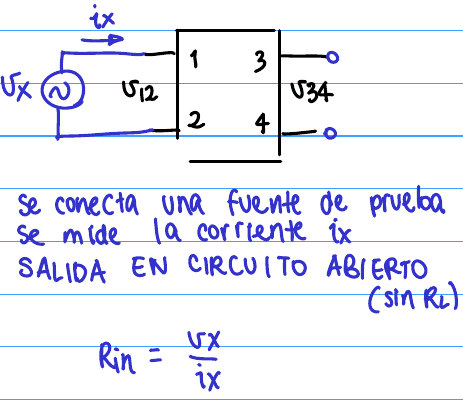 ix
1 3
vx v12 v34
2 4
se conecta una fuente de prueba
se mide la corriente ix
SALIDA EN CIRCUITO ABIERTO
(sin RL)
Rin = vx/ix